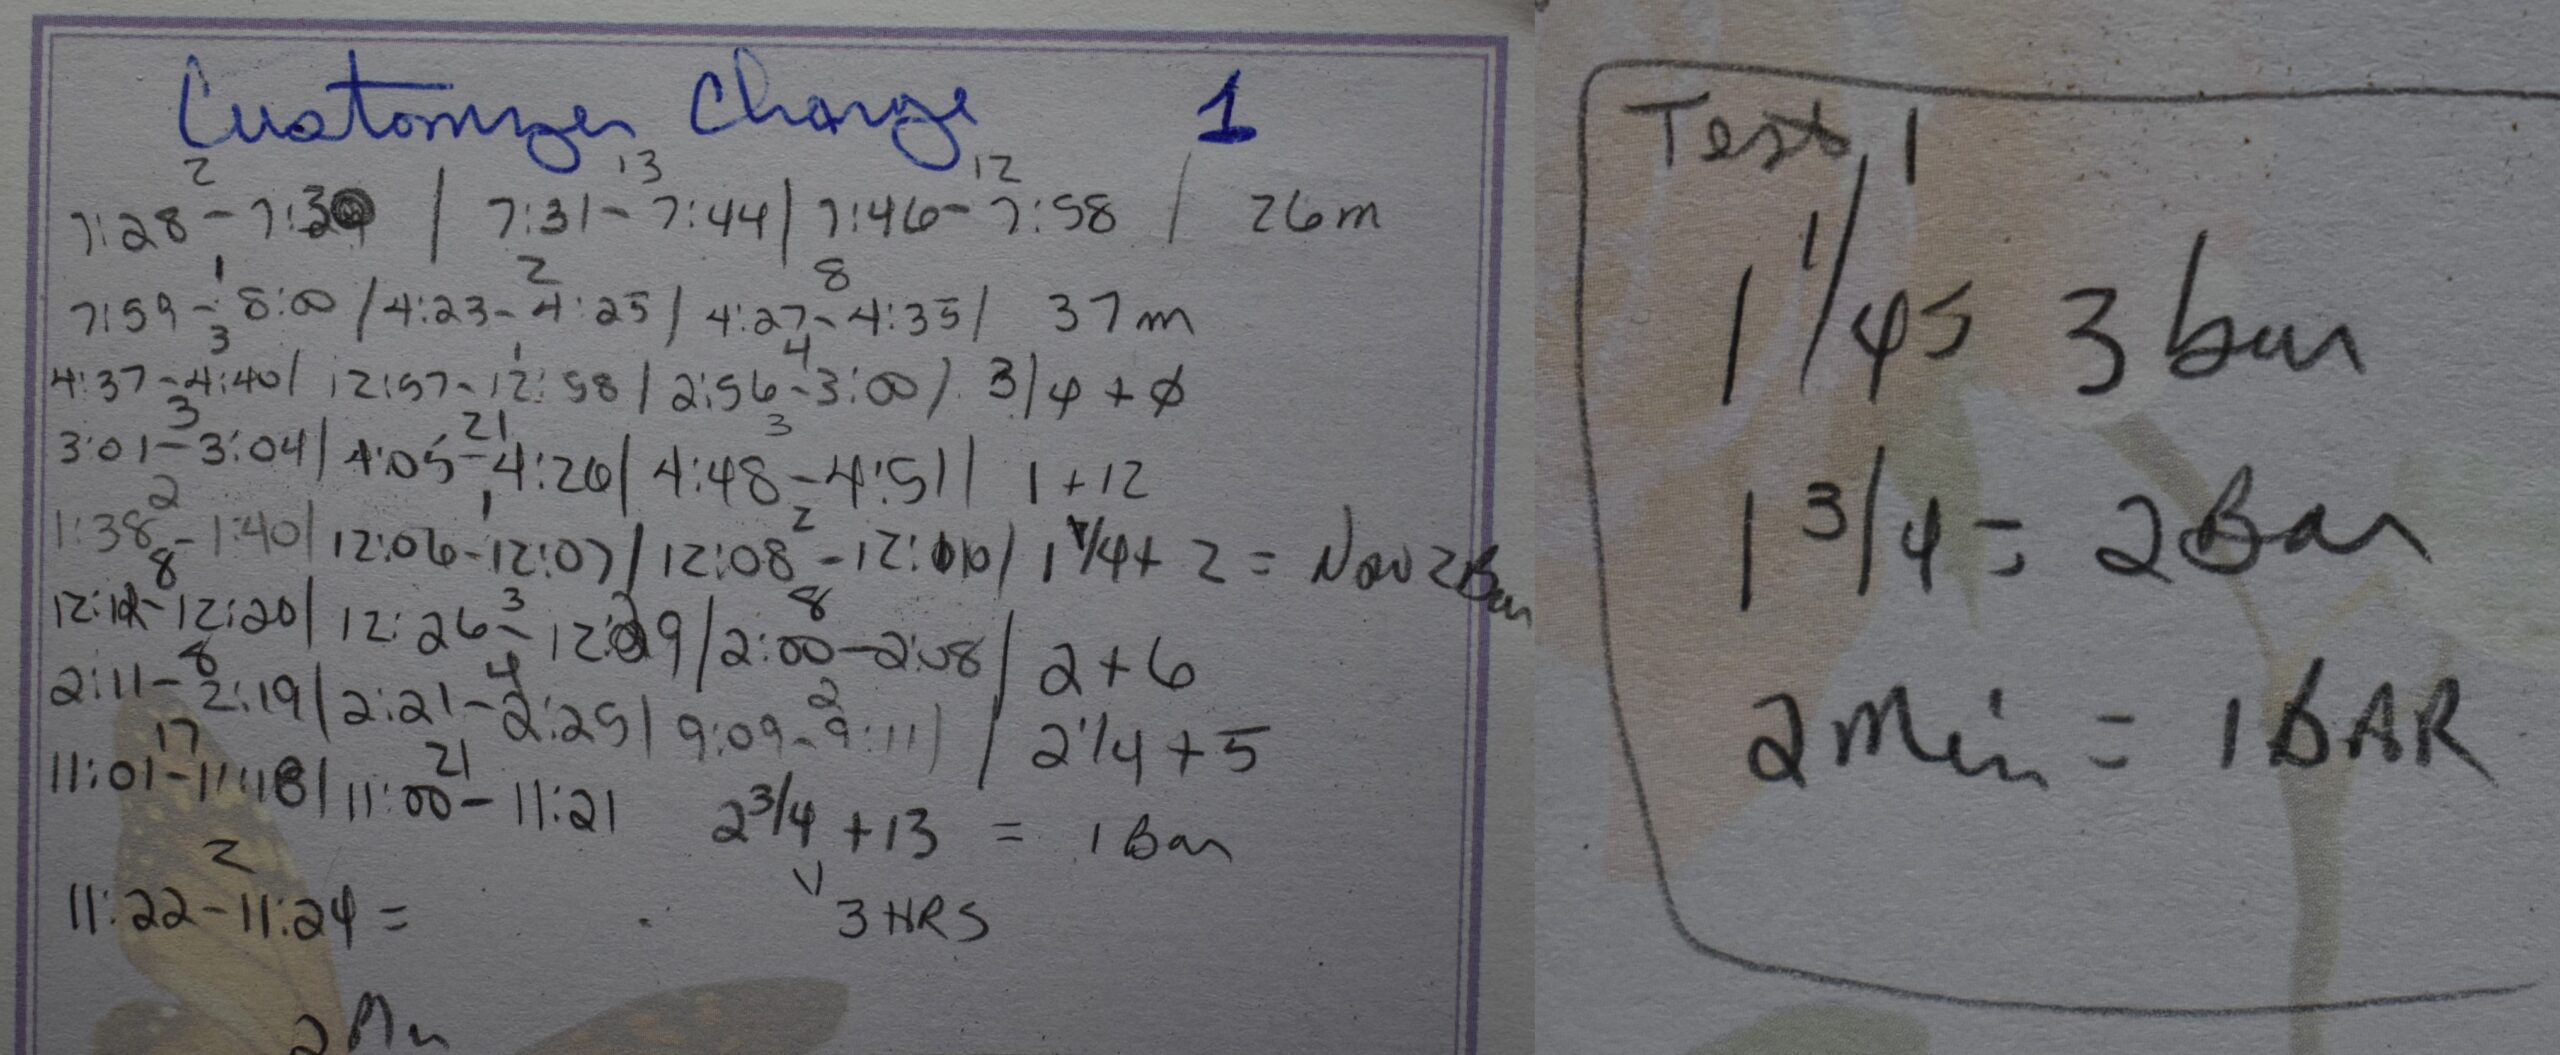 Customizer Charge 1
2 13 12
7:28-7:30 / 7:31-7:44 / 7:46-7:58 / 26m
1 2 8
7:59-8:00 / 4:23-4:25 / 4:27-4:35 / 37m
3 1 4
4:37-4:40 / 12:57-12:58 / 2:56-3:00 / 3/4 + ϕ
3 21 3
3:01-3:04 / 4:05-4:26 / 4:48-4:51 / 1+12
2 1 2
1:38-1:40 / 12:06-12:07 / 12:08-12:10 / 1 1/4 + 2 = Now 2 Bar
8 3 8
12:12-12:20 / 12:26-12:29 / 2:00-2:08 / 2+6
8 4 2
2:11-2:19 / 2:21-2:25 / 9:09-9:11 / 2 1/4 + 5
17 21
11:01-11:18 / 11:00-11:21 2 3/4 + 13 = 1 Bar
2
11:22-11:24 = 3 HRS
2 Min
Test 1
1 1/4 = 3 bar
1 3/4 = 2 Bar
2 Min = 1 BAR